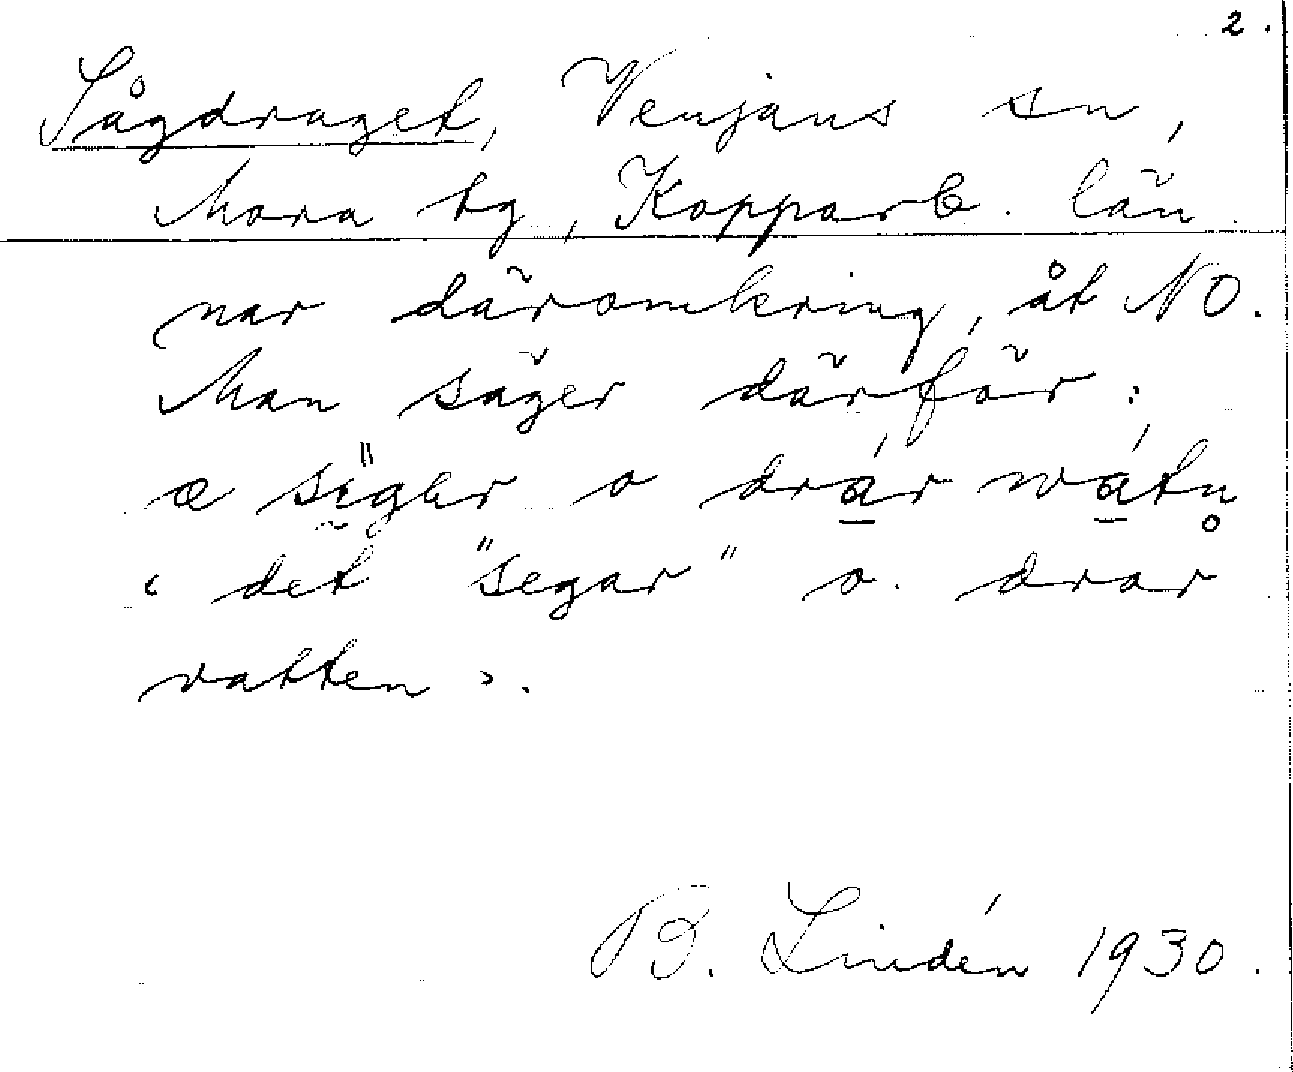 2.
Sågdraget, Venjans sn,
Mora tg, Kopparb. län.
nar däromkring, åt NO.
Man säger därför:
æ o drár wátn̥
‹ det "segar" o. drar
vatten ›.
B. Lindén 1930.